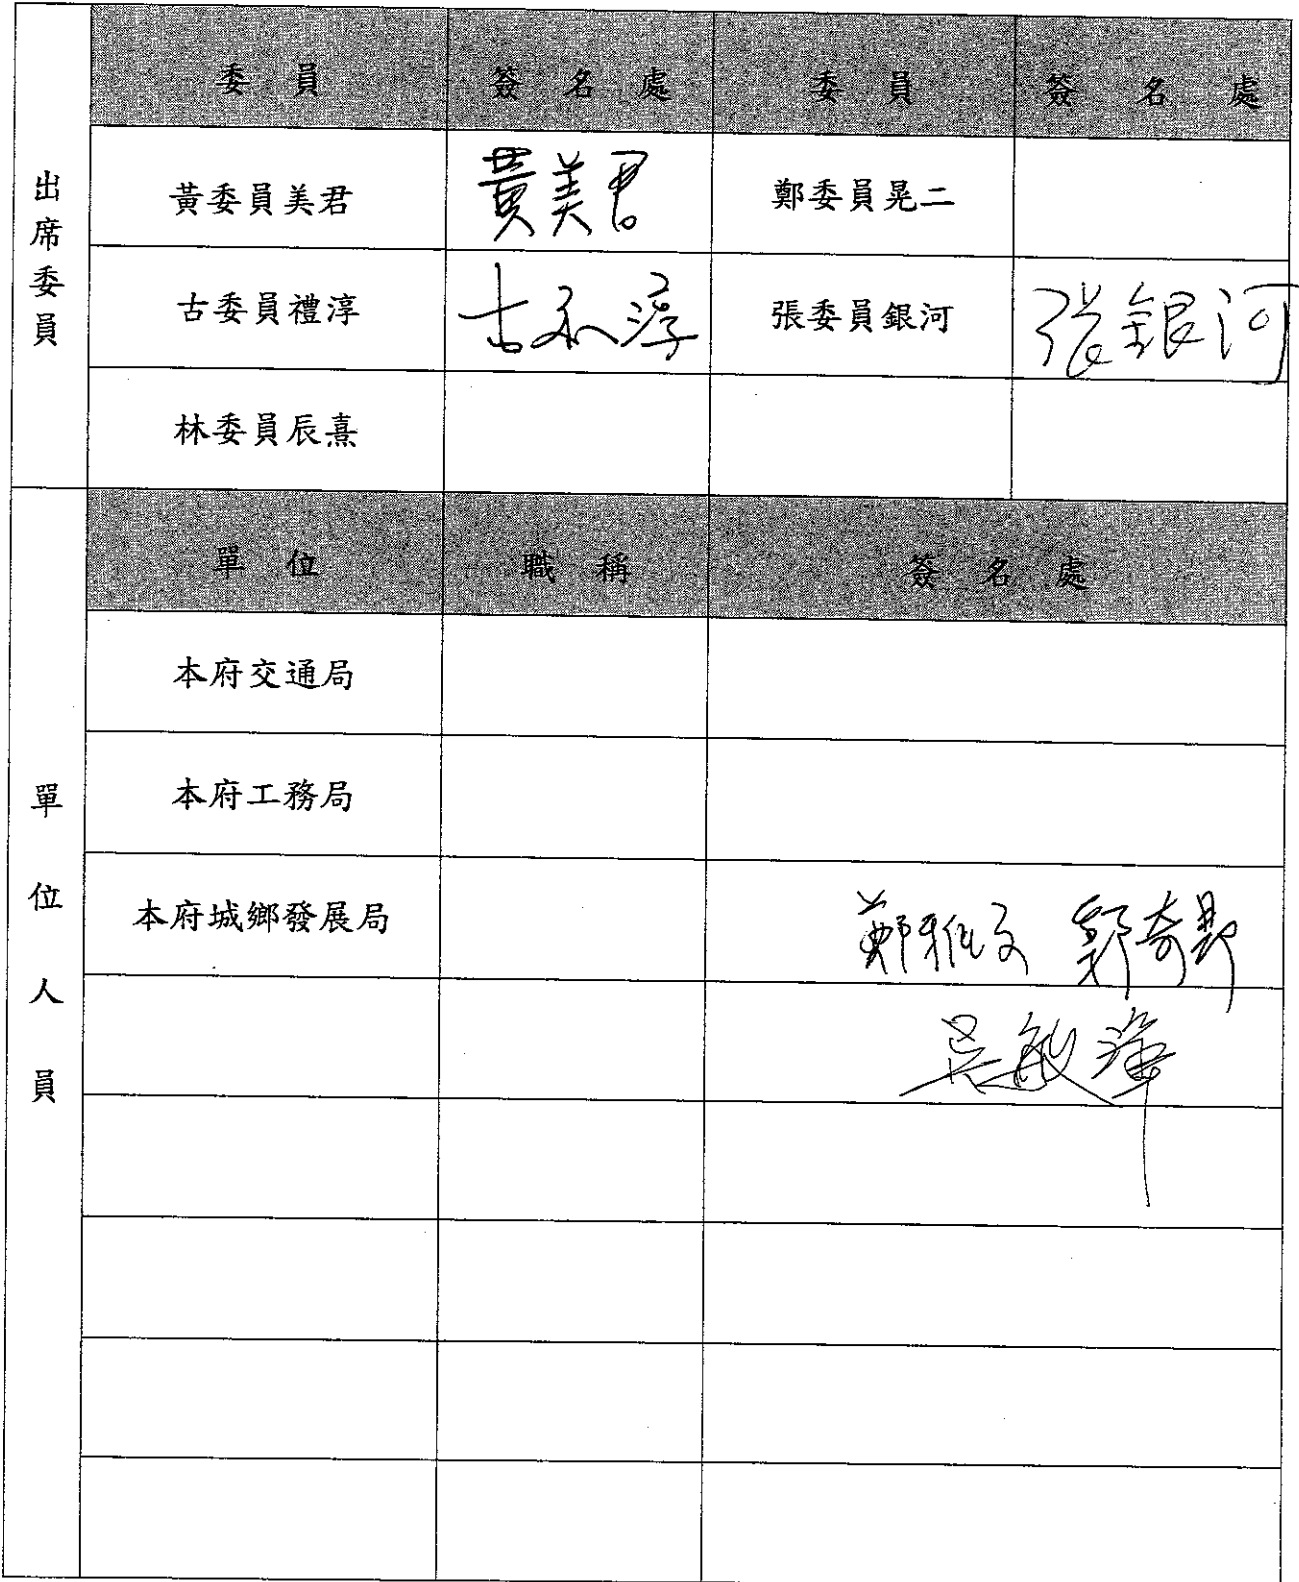 出席委員
委員 簽名處 委員 簽名處
黃委員美君 黃美君 鄭委員晃二
古委員禮淳 古礼淳 張委員銀河 張銀河
林委員辰熹
單位人員
單位 職稱 簽名處
本府交通局
本府工務局
本府城鄉發展局 鄭雅文
吳敏